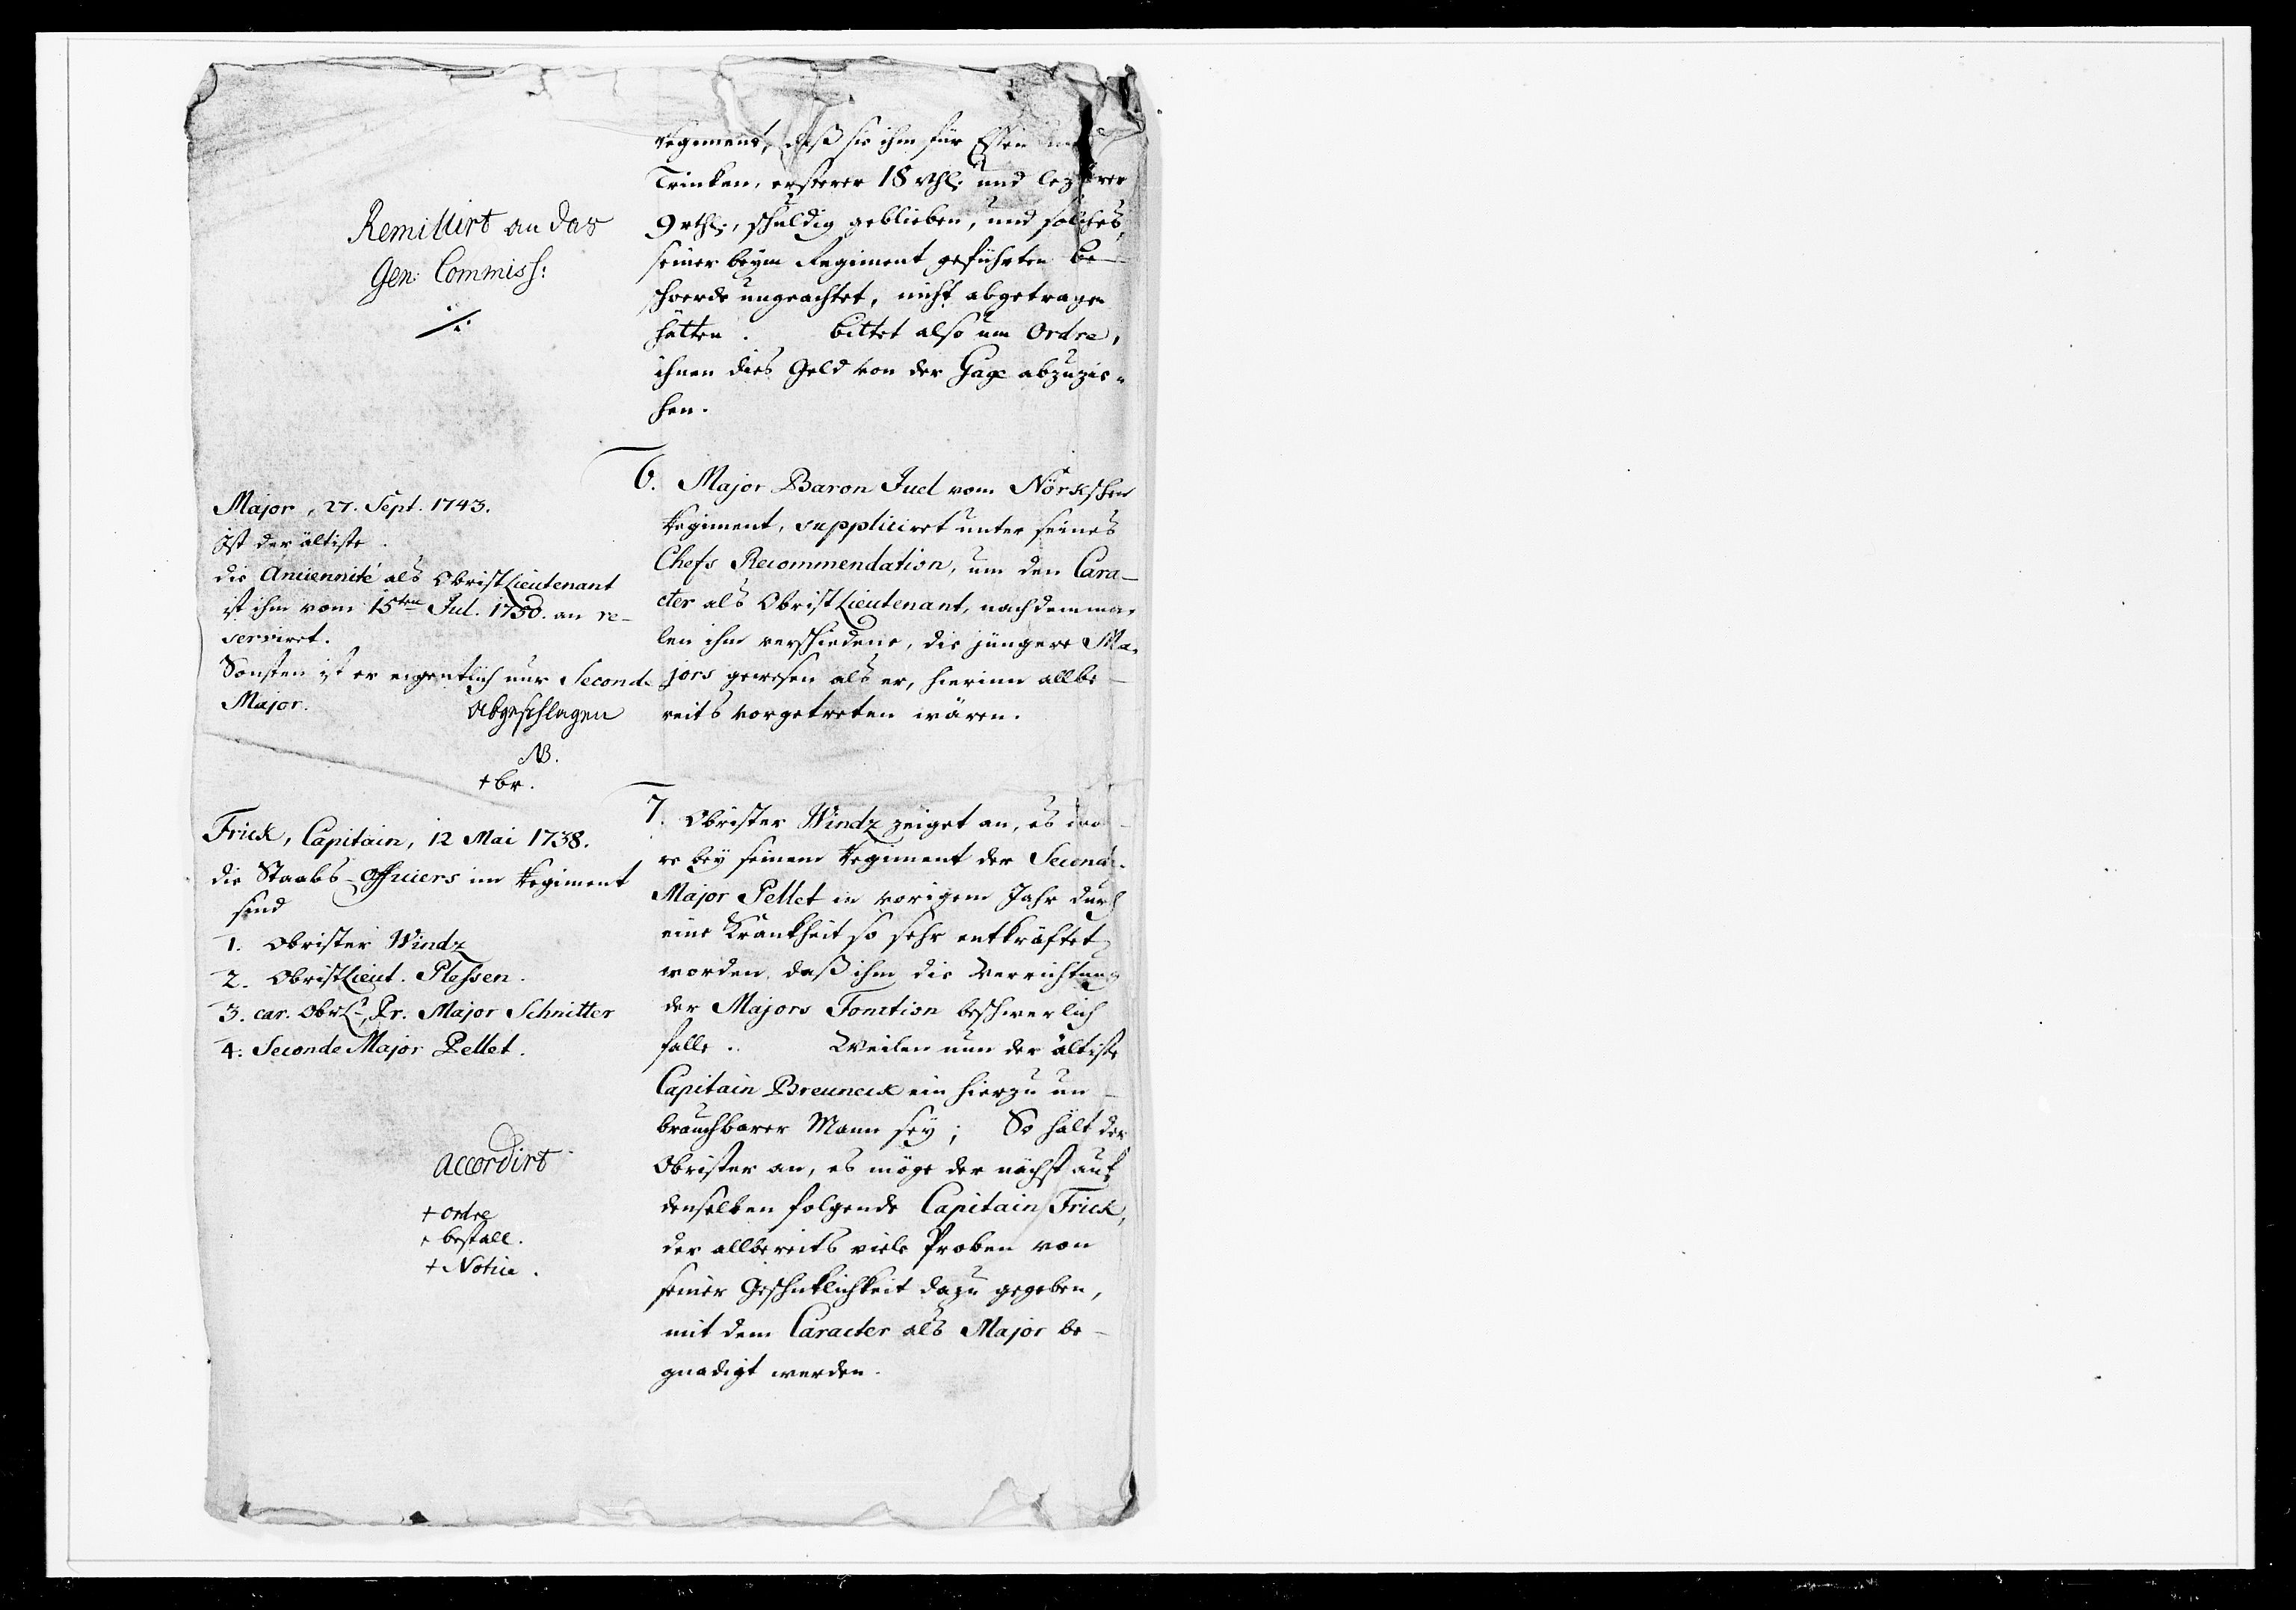 Regiment, daß sie ihm für Essen
Trinken, ersterer 18 rthl: und lezterer
9 rthl:, schuldig geblieben, und solches,
seiner beym Regiment geführten Be-
schwerde ungeachtet, nicht abgetragen
hätten. bittet also um Ordre,
ihnen dies Geld von der Gage abzuzie-
hen.
Remittirt an das
Gen: Commiss:
6. Major Baron Juel vom Nörckschen
Regiment, suppliciret unter seines
Chefs Recommendation, um den Cara-
cter als ObristLieutenant, nachdemma-
len ihm verschiedene, die jüngere Ma-
jors gewesen als er, hierinn allbe-
reits vorgetreten wären.
Major, 27. Sept. 1743.
Ist der älteste.
die Anciennité als ObristLieutenant
ist ihm vom 15ten Jul. 1750. an re-
serviret.
Sonsten ist er eigentlich nur Seconde
Major.
Abgeschlagen
NB.
+ br.
7. Obrister Windz zeiget an, es wä-
re bey seinem Regiment der Second-
Major Pellet in vorigem Jahr durch
eine Krankheit so sehr entkräftet
worden, daß ihm die Verrichtung
der Majors Fonction beschwerlich
falle. Weilen nun der älteste
Capitain Breuneck ein hierzu un-
brauchbarer Mann sey; So hält der
Obrister an, es möge der nächst auf
denselben folgende Capitain Frick,
der allbereits viele Proben von
seiner Geschiklichkeit dazu gegeben,
mit dem Caracter als Major be-
gnadigt werden.
Frick, Capitain, 12 Mai 1738.
die Staabs-Officiers im Regiment
sind
1. Obrister Windz
2. ObristLieut. Plessen.
3. car. ObrLt, Pr. Major Schnitter
4. Seconde Major Pellet.
accordirt
+ ordre
+ bestall.
+ Notice.